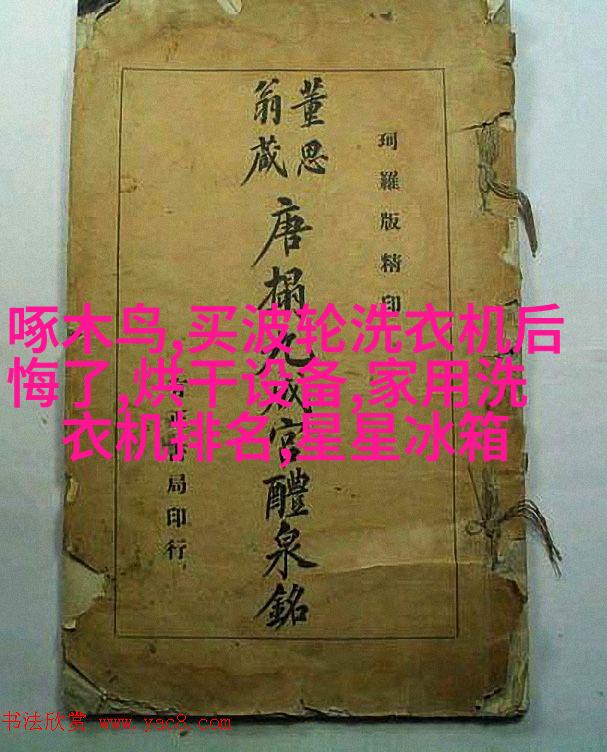 珂羅版精印
董思
翁藏
唐搨九成宮醴泉銘
正書局印行
啄木鸟,买波轮洗衣机后
悔了,烘干设备,家用洗
衣机排名,星星冰箱
书法欣赏 www.yac8.com